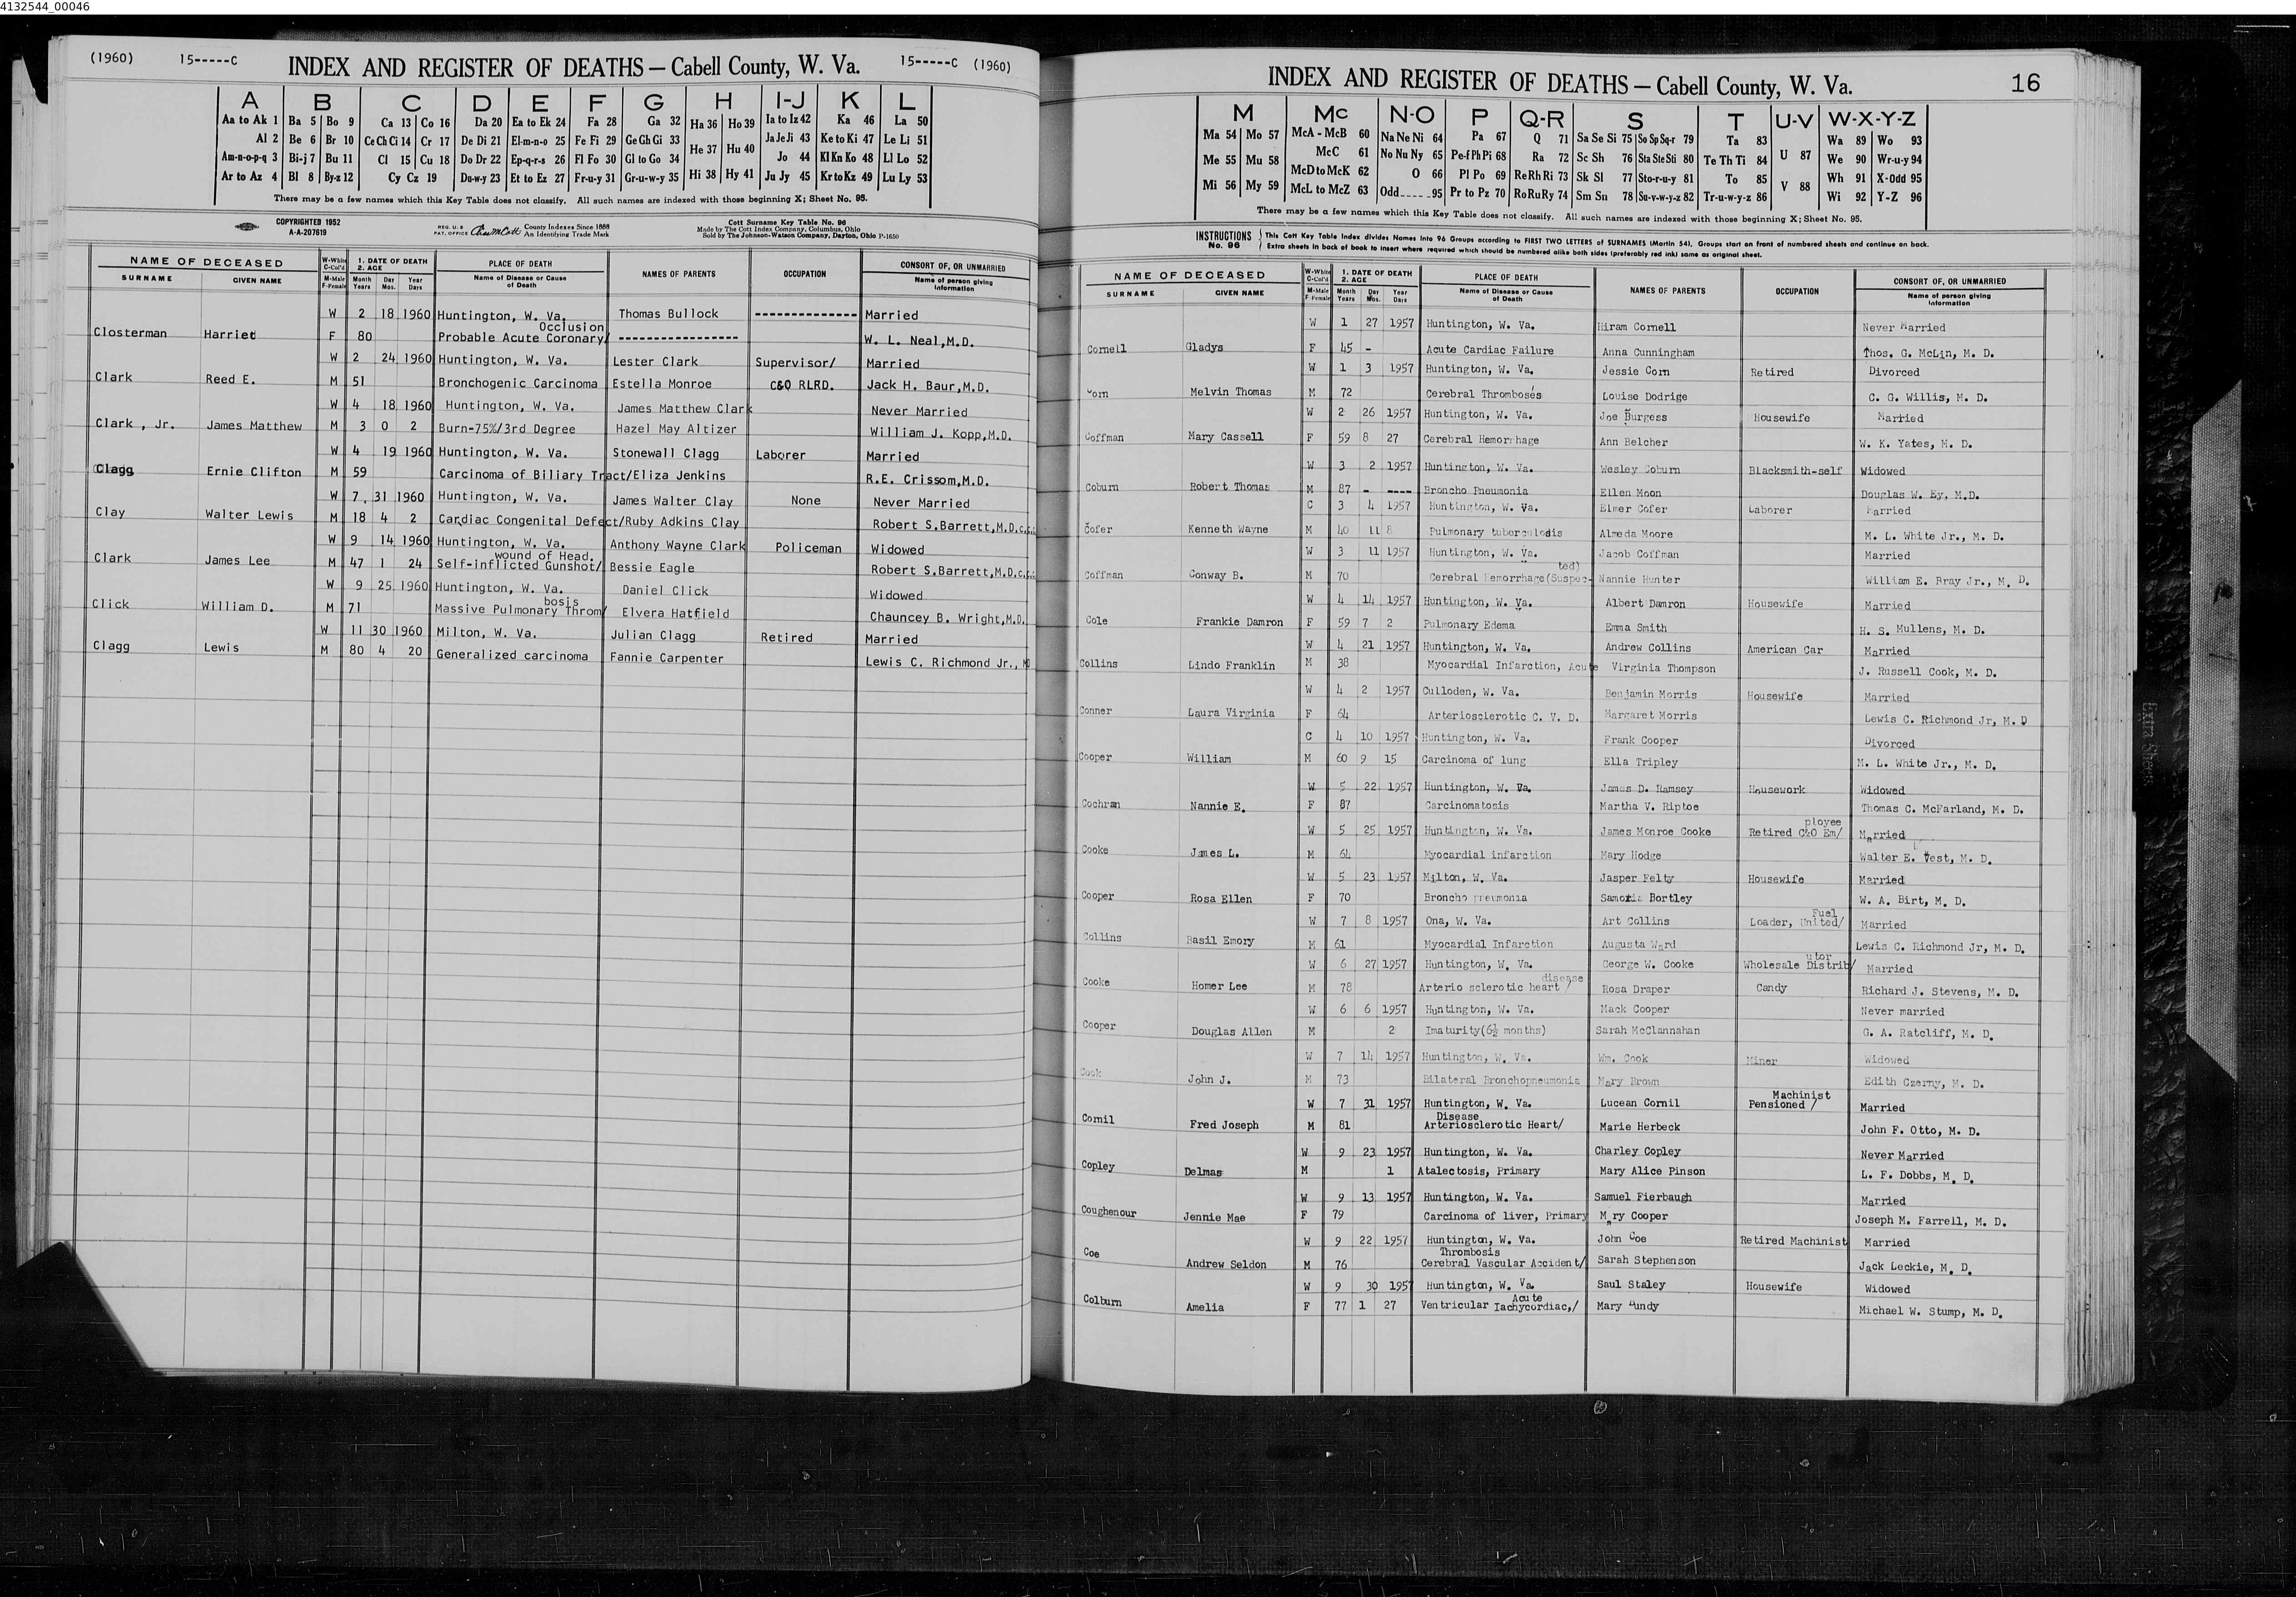 4132544_00046
(1960) 15-----C INDEX AND REGISTER OF DEATHS — Cabell County, W. Va. 15-----C (1960)
A B C D E F G H I-J K L
Aa to Ak 1 Ba 5 Bo 9 Ca 13 Co 16 Da 20 Ea to Ek 24 Fa 28 Ga 32 Ha 36 Ho 39 Ia to Iz 42 Ka 46 La 50
Al 2 Be 6 Br 10 Ce Ch Ci 14 Cr 17 De Di 21 El-m-n-o 25 Fe Fi 29 Ge Gh Gi 33 He 37 Hu 40 Ja Je Ji 43 Ke to Ki 47 Le Li 51
Am-n-o-p-q 3 Bi-j 7 Bu 11 Cl 15 Cu 18 Do Dr 22 Ep-q-r-s 26 Fl Fo 30 Gl to Go 34 Jo 44 Kl Kn Ko 48 Ll Lo 52
Ar to Az 4 Bl 8 By-z 12 Cy Cz 19 Du-w-y 23 Et to Ez 27 Fr-u-y 31 Gr-u-w-y 35 Hi 38 Hy 41 Ju Jy 45 Kr to Kz 49 Lu Ly 53
There may be a few names which this Key Table does not classify. All such names are indexed with those beginning X; Sheet No. 95.
COPYRIGHTED 1952
A-A-207619
REG. U.S. PAT. OFFICE County Indexes Since 1888
An Identifying Trade Mark
Cott Surname Key Table No. 96
Made by The Cott Index Company, Columbus, Ohio
Sold by The Johnson-Watson Company, Dayton, Ohio P-1650
NAME OF DECEASED W-White C-Col'd 1. DATE OF DEATH 2. AGE PLACE OF DEATH NAMES OF PARENTS OCCUPATION CONSORT OF, OR UNMARRIED
SURNAME GIVEN NAME M-Male F-Female Month Years Day Mos. Year Days Name of Disease or Cause of Death Name of person giving Information
W 2 18 1960 Huntington, W. Va. Thomas Bullock -------------- Married
Occlusion
Closterman Harriet F 80 Probable Acute Coronary/ ----------------- W. L. Neal,M.D.
W 2 24 1960 Huntington, W. Va. Lester Clark Supervisor/ Married
Clark Reed E. M 51 Bronchogenic Carcinoma Estella Monroe C&O RLRD. Jack H. Baur,M.D.
W 4 18 1960 Huntington, W. Va. James Matthew Clark Never Married
Clark , Jr. James Matthew M 3 0 2 Burn-75%/3rd Degree Hazel May Altizer William J. Kopp,M.D.
W 4 19 1960 Huntington, W. Va. Stonewall Clagg Laborer Married
Clagg Ernie Clifton M 59 Carcinoma of Biliary Tract/Eliza Jenkins R.E. Crissom,M.D.
W 7 31 1960 Huntington, W. Va. James Walter Clay None Never Married
Clay Walter Lewis M 18 4 2 Cardiac Congenital Defect/Ruby Adkins Clay Robert S.Barrett,M.D.
W 9 14 1960 Huntington, W. Va. Anthony Wayne Clark Policeman Widowed
wound of Head.
Clark James Lee M 47 1 24 Self-inflicted Gunshot/ Bessie Eagle Robert S.Barrett,M.D.
W 9 25 1960 Huntington, W. Va. Daniel Click Widowed
bosis
Click William D. M 71 Massive Pulmonary Throm/ Elvera Hatfield Chauncey B. Wright,M.D.
W 11 30 1960 Milton, W. Va. Julian Clagg Retired Married
Clagg Lewis M 80 4 20 Generalized carcinoma Fannie Carpenter Lewis C. Richmond Jr., MD
INDEX AND REGISTER OF DEATHS — Cabell County, W. Va. 16
M Mc N-O P Q-R S T U-V W-X-Y-Z
Ma 54 Mo 57 McA - McB 60 Na Ne Ni 64 Pa 67 Q 71 Sa Se Si 75 So Sp Sq-r 79 Ta 83 U 87 Wa 89 Wo 93
Me 55 Mu 58 McC 61 No Nu Ny 65 Pe-f Ph Pi 68 Ra 72 Sc Sh 76 Sta Ste Sti 80 Te Th Ti 84 We 90 Wr-u-y 94
McD to McK 62 O 66 Pl Po 69 Re Rh Ri 73 Sk Sl 77 Sto-r-u-y 81 To 85 V 88 Wh 91 X-Odd 95
Mi 56 My 59 McL to McZ 63 Odd_____95 Pr to Pz 70 Ro Ru Ry 74 Sm Sn 78 Su-v-w-y-z 82 Tr-u-w-y-z 86 Wi 92 Y-Z 96
There may be a few names which this Key Table does not classify. All such names are indexed with those beginning X; Sheet No. 95.
INSTRUCTIONS No. 96 This Cott Key Table Index divides Names into 96 Groups according to FIRST TWO LETTERS of SURNAMES (Martin 54), Groups start on front of numbered sheets and continue on back.
Extra sheets in back of book to insert where required which should be numbered alike both sides (preferably red ink) same as original sheet.
NAME OF DECEASED W-White C-Col'd 1. DATE OF DEATH 2. AGE PLACE OF DEATH NAMES OF PARENTS OCCUPATION CONSORT OF, OR UNMARRIED
SURNAME GIVEN NAME M-Male F-Female Month Years Day Mos. Year Days Name of Disease or Cause of Death Name of person giving Information
W 1 27 1957 Huntington, W. Va. Hiram Cornell Never Married
Cornell Gladys F 45 - Acute Cardiac Failure Anna Cunningham Thos. G. McLin, M. D.
W 1 3 1957 Huntington, W. Va. Jessie Corn Retired Divorced
Corn Melvin Thomas M 72 Cerebral Thromboses Louise Dodrige C. G. Willis, M. D.
W 2 26 1957 Huntington, W. Va. Joe Burgess Housewife Married
Coffman Mary Cassell F 59 8 27 Cerebral Hemorrhage Ann Belcher W. K. Yates, M. D.
W 3 2 1957 Huntington, W. Va. Wesley Coburn Blacksmith-self Widowed
Coburn Robert Thomas M 87 - ---- Broncho Pneumonia Ellen Moon Douglas W. Ey, M.D.
C 3 4 1957 Huntington, W. Va. Elmer Cofer Laborer Married
Cofer Kenneth Wayne M 40 11 8 Pulmonary tuberculosis Almeda Moore M. L. White Jr., M. D.
W 3 11 1957 Huntington, W. Va. Jacob Coffman Married
ted)
Coffman Conway B. M 70 Cerebral Hemorrhage(Suspec- Nannie Hunter William E. Bray Jr., M. D.
W 4 14 1957 Huntington, W. Va. Albert Damron Housewife Married
Cole Frankie Damron F 59 7 2 Pulmonary Edema Emma Smith H. S. Mullens, M. D.
W 4 21 1957 Huntington, W. Va. Andrew Collins American Car Married
Collins Lindo Franklin M 38 Myocardial Infarction, Acute Virginia Thompson J. Russell Cook, M. D.
W 4 2 1957 Culloden, W. Va. Benjamin Morris Housewife Married
Conner Laura Virginia F 64 Arteriosclerotic C. V. D. Margaret Morris Lewis C. Richmond Jr, M. D
C 4 10 1957 Huntington, W. Va. Frank Cooper Divorced
Cooper William M 60 9 15 Carcinoma of lung Ella Tripley M. L. White Jr., M. D.
W 5 22 1957 Huntington, W. Va. James D. Ramsey Housework Widowed
Cochran Nannie E. F 87 Carcinomatosis Martha V. Riptoe Thomas C. McFarland, M. D.
ployee
W 5 25 1957 Huntington, W. Va. James Monroe Cooke Retired C&O Em/ Married
Cooke James L. M 64 Myocardial infarction Mary Hodge Walter E. Vest, M. D.
W 5 23 1957 Milton, W. Va. Jasper Felty Housewife Married
Cooper Rosa Ellen F 70 Broncho pneumonia Samoria Bortley W. A. Birt, M. D.
Fuel
W 7 8 1957 Ona, W. Va. Art Collins Loader, United/ Married
Collins Basil Emory M 61 Myocardial Infarction Augusta Ward Lewis C. Richmond Jr, M. D.
utor
W 6 27 1957 Huntington, W. Va. George W. Cooke Wholesale Distrib/ Married
disease
Cooke Homer Lee M 78 Arterio sclerotic heart / Rosa Draper Candy Richard J. Stevens, M. D.
W 6 6 1957 Huntington, W. Va. Mack Cooper Never married
Cooper Douglas Allen M 2 Imaturity(6½ months) Sarah McClannahan G. A. Ratcliff, M. D.
W 7 14 1957 Huntington, W. Va. Wm. Cook Miner Widowed
Cook John J. M 73 Bilateral Bronchopneumonia Mary Brown Edith Czerny, M. D.
Machinist
W 7 31 1957 Huntington, W. Va. Lucean Cornil Pensioned / Married
Disease
Cornil Fred Joseph M 81 Arteriosclerotic Heart/ Marie Herbeck John F. Otto, M. D.
W 9 23 1957 Huntington, W. Va. Charley Copley Never Married
Copley Delmas M 1 Atalectosis, Primary Mary Alice Pinson L. F. Dobbs, M. D.
W 9 13 1957 Huntington, W. Va. Samuel Fierbaugh Married
Coughenour Jennie Mae F 79 Carcinoma of liver, Primary Mary Cooper Joseph M. Farrell, M. D.
W 9 22 1957 Huntington, W. Va. John Coe Retired Machinist Married
Thrombosis
Coe Andrew Seldon M 76 Cerebral Vascular Accident/ Sarah Stephenson Jack Leckie, M. D.
W 9 30 1957 Huntington, W. Va. Saul Staley Housewife Widowed
Acute
Colburn Amelia F 77 1 27 Ventricular Iachycordiac,/ Mary Mundy Michael W. Stump, M. D.